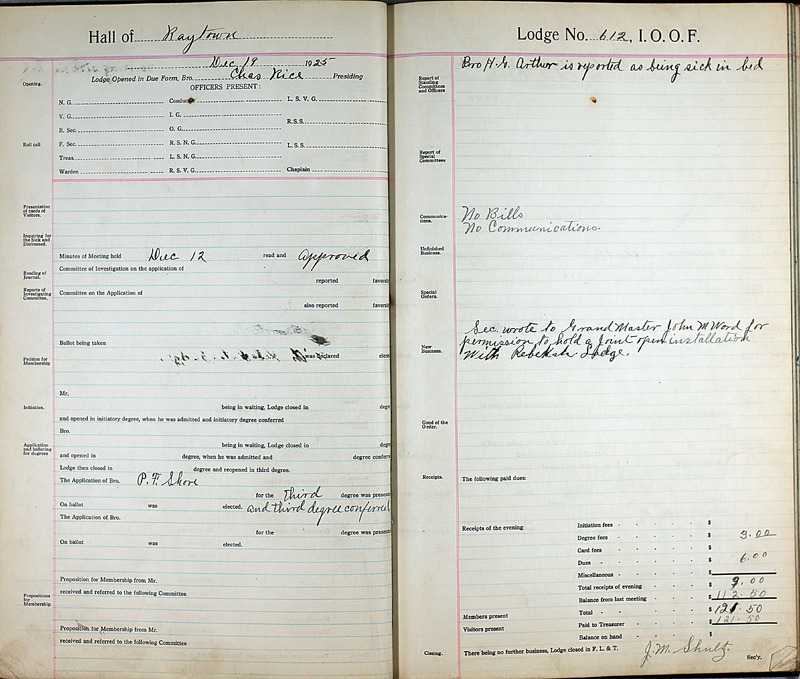 Hall of Raytown
Dec 19 1925
Lodge Opened in Due Form, Bro. Chas Rice Presiding
Opening.
OFFICERS PRESENT:
N. G. Conductor L. S. V. G.
V. G. I. G.
R. Sec. O. G. R.S.S.
Roll call
F. Sec. R. S. N. G. L. S. S.
Treas. L. S. N. G.
Warden R. S. V. G. Chaplain
Presentation of cards of Visitors.
Inquiring for the Sick and Distressed.
Minutes of Meeting held Dec 12 read and approved
Reading of Journal.
Committee of Investigation on the application of
reported favera
Reports of Investigating Committee.
Committee on the Application of
also reported favera
Ballot being taken
was declared elect
Petition for Membership
Mr.
Initiation.
being in waiting, Lodge closed in degr
and opened in initiatory degree, when he was admitted and initiatory degree conferred
Bro.
Application and balloting for degrees
being in waiting, Lodge closed in degr
and opened in degree, when he was admitted and degree conferr
Lodge then closed in degree and reopened in third degree.
The Application of Bro. P. F. Shore
for the third degree was presente
On ballot was elected. and third degree conferred
The Application of Bro.
for the degree was presente
On ballot was elected.
Proposition for Membership from Mr.
Propositions for Membership
received and referred to the following Committee
Proposition for Membership from Mr.
received and referred to the following Committee
Lodge No. 612, I. O. O. F.
Bro H. G. Arthur is reported as being sick in bed
Report of Standing Committees and Officers
Report of Special Committees
Communications.
No Bills
No Communications.
Unfinished Business.
Special Orders.
New Business.
Sec. wrote to Grand Master John M Word for
permission to hold a Joint open installation
With Rebekah Lodge.
Good of the Order.
Receipts.
The following paid dues:
Receipts of the evening
Initiation fees - - - - $
Degree fees - - - - $ 3.00
Card fees - - - - $
Dues - - - - $ 6.00
Miscellaneous - - - - $
Total receipts of evening - - $ 9.00
Balance from last meeting - - $ 112.50
Members present
Total - - - - $ 121 50
Visitors present
Paid to Treasurer - - - $ 121.50
Balance on hand - - - $
Closing.
There being no further business, Lodge closed in F. L. & T. J. M. Shultz. Sec'y.